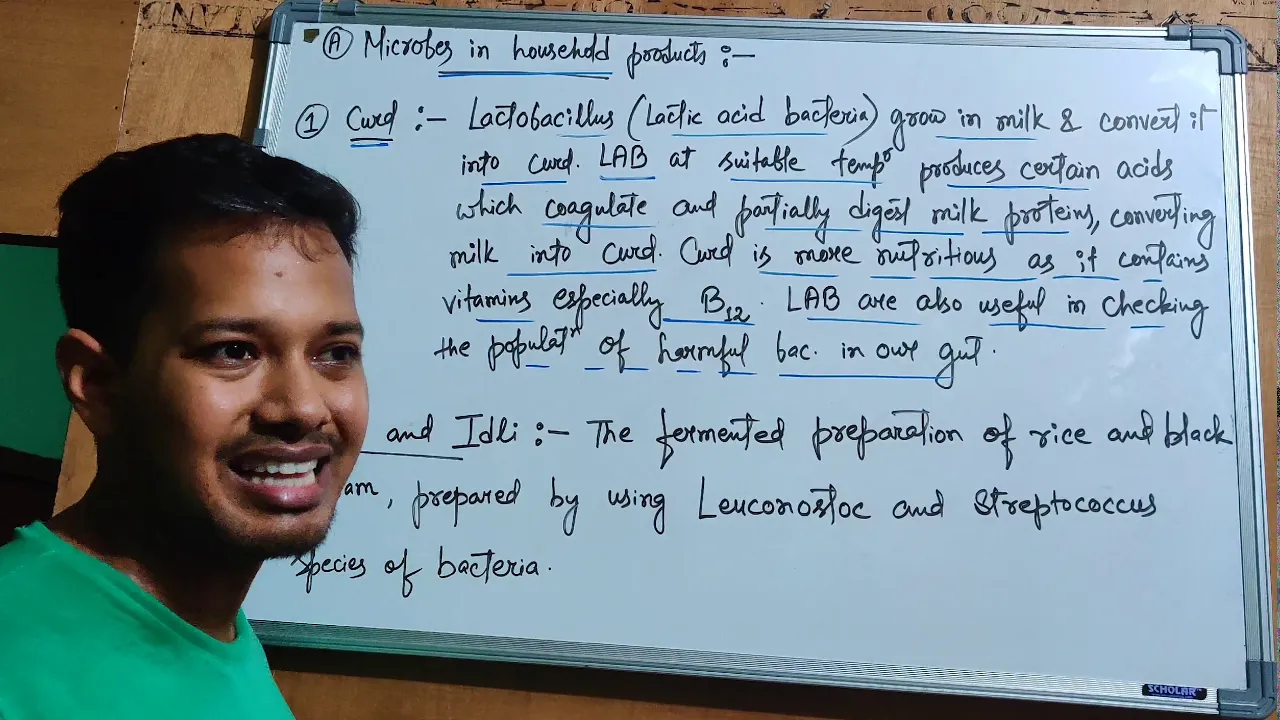 Ⓐ Microbes in household products :—
① Curd :— Lactobacillus (Lactic acid bacteria) grow in milk & convert it
into curd. LAB at suitable tempʳ produces certain acids
which coagulate and partially digest milk proteins, converting
milk into curd. Curd is more nutritious as it contains
vitamins especially B₁₂. LAB are also useful in checking
the populatⁿ of harmful bac. in our gut.
and Idli :— The fermented preparation of rice and black
am, prepared by using Leuconostoc and Streptococcus
species of bacteria.
SCHOLAR